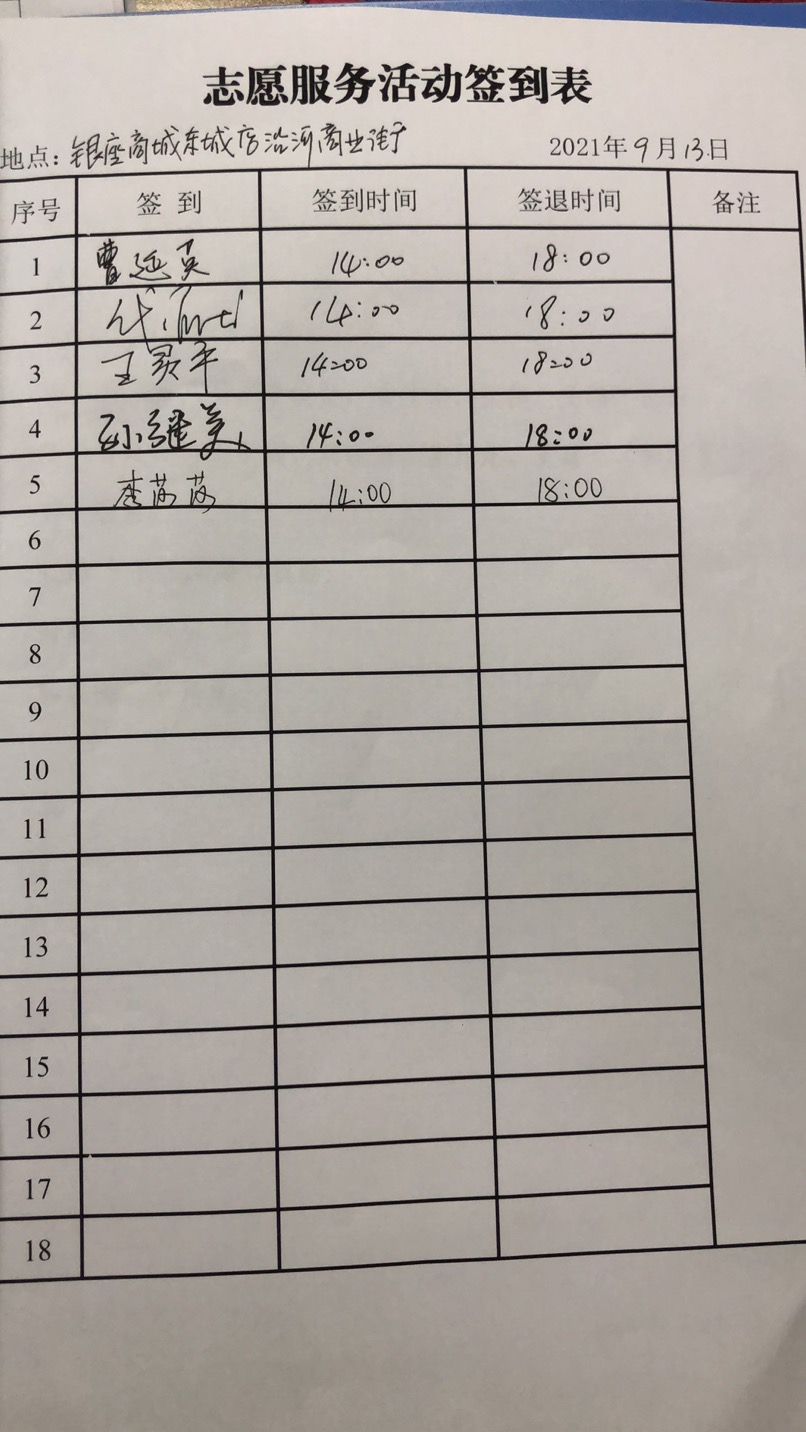 志愿服务活动签到表
地点：银座商城东城店沿河商业街 2021年9月13日
序号 签到 签到时间 签退时间 备注
1 曹延英 14:00 18:00
2 14:00 18:00
3 王灵平 14:00 18:00
4 孙继美 14:00 18:00
5 李芮芮 14:00 18:00
6
7
8
9
10
11
12
13
14
15
16
17
18